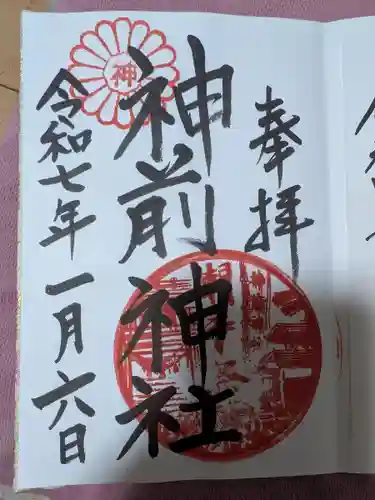 奉拝
神前神社
令和七年一月六日
神